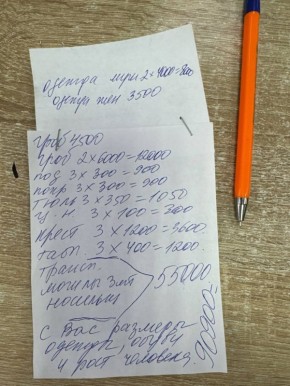 одежда муж 2 × 4000 = 8000
одежда жен 3500
гроб 4500
гроб 2 × 6000 = 12000
под 3 × 300 = 900
покр 3 × 300 = 900
тюль 3 × 350 = 1050
ц. н. 3 × 100 = 300
крест 3 × 1200 = 3600
табл 3 × 400 = 1200
трансп.
могилы 3 шт
носильщ
55000
с Вас размеры
одежды, обуви
и рост человека
90900=